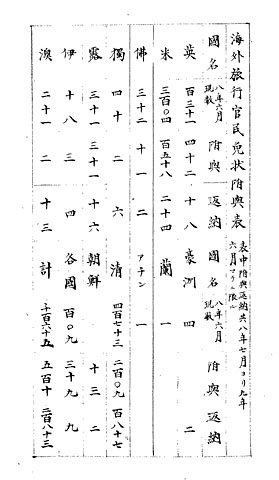 海外旅行官民免狀附與表
表中附與返納共八年七月ヨリ九年
六月マデニ限ル
國名 八年六月現數 附與 返納 國名 八年六月現數 附與 返納
英 百三十一 四十二 十八 豪洲 四 二
米 三百〇四 百五十八 二十四 蘭 一
佛 三十二 十一 二 アテン 一
獨 四十二 二 六 清 四百七十三 二百〇九 百八十七
露 三十一 三十一 十六 朝鮮 十三 二
伊 十八 三 四 各國 百〇九 三十九 九
澳 二十一 二 十三 計 千百六十五 五百十 二百八十三